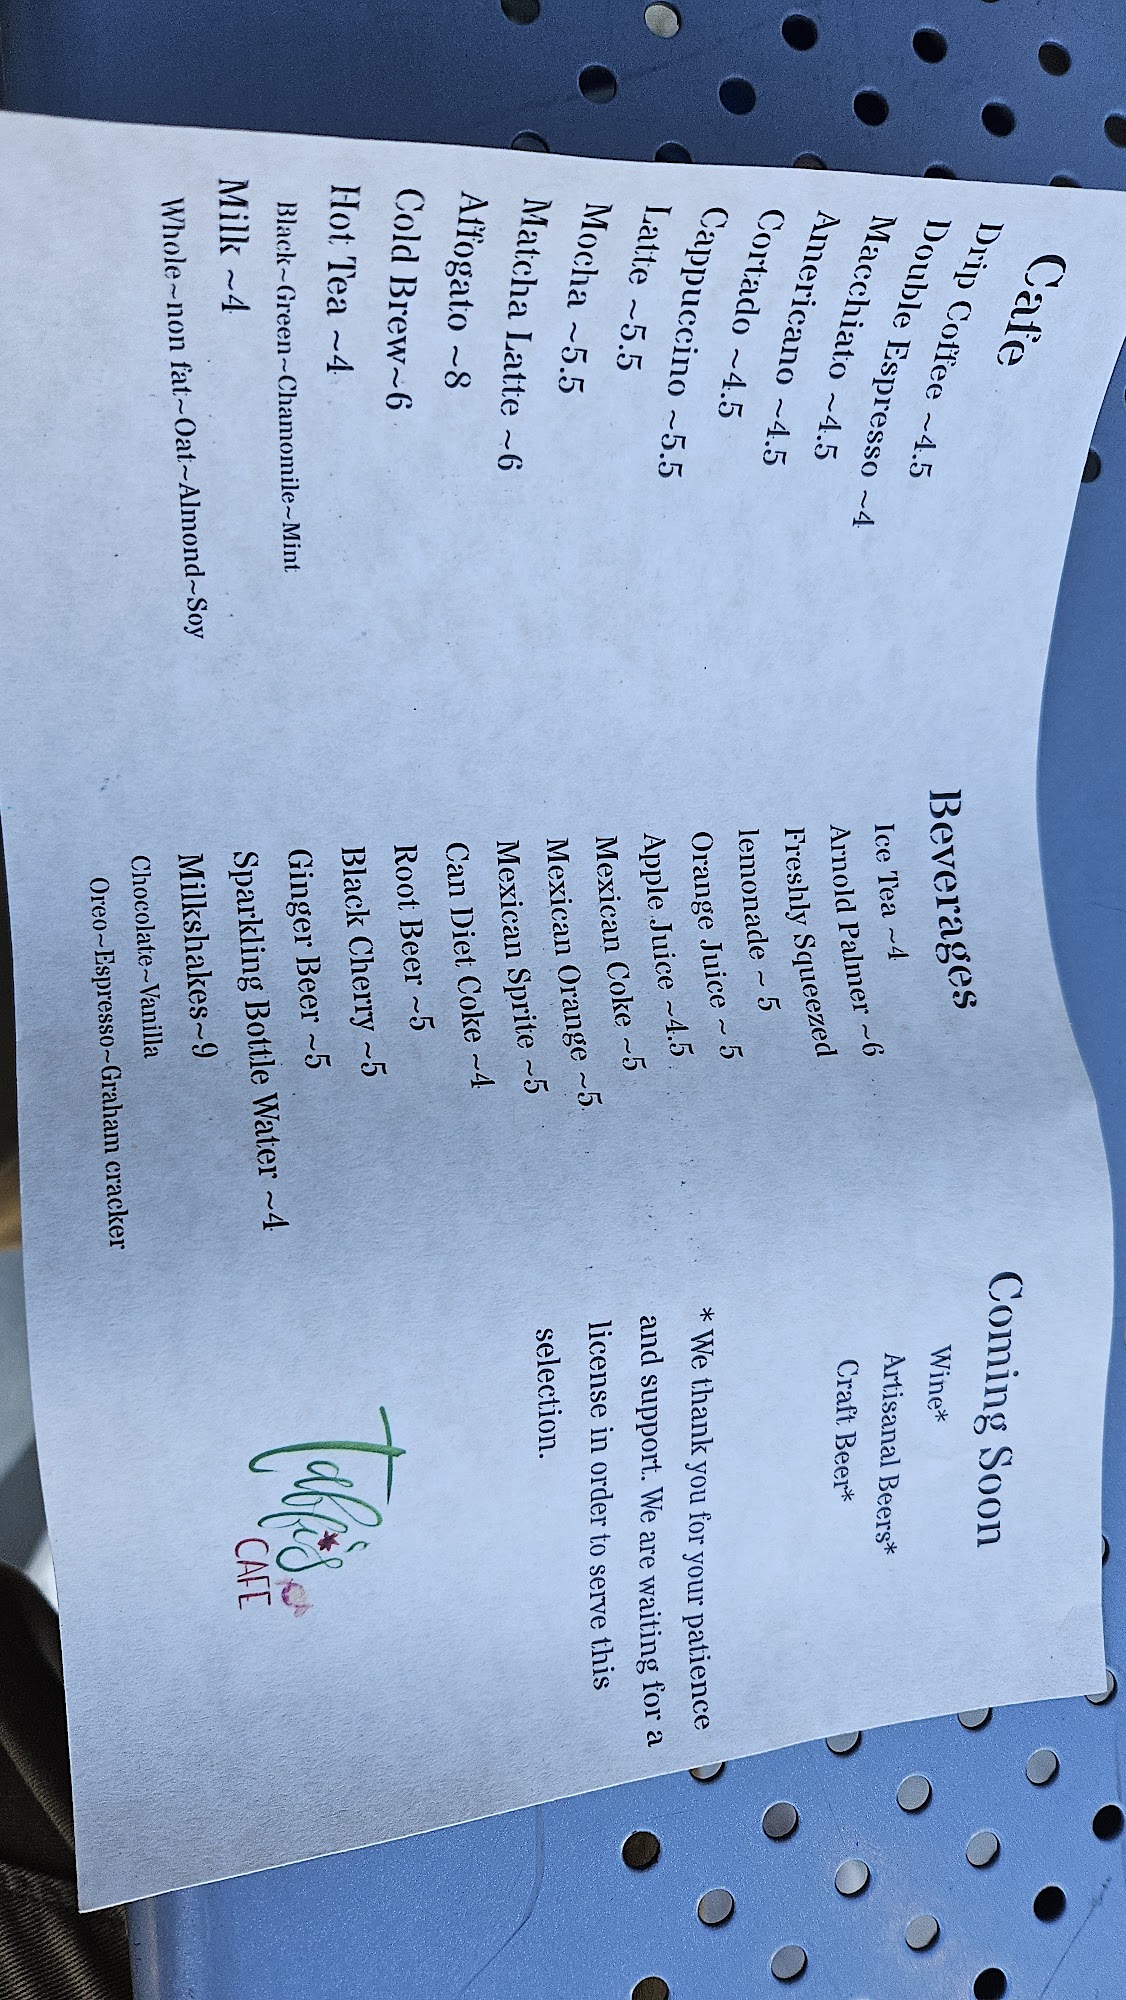 Cafe
Drip Coffee ~4.5
Double Espresso ~4
Macchiato ~4.5
Americano ~4.5
Cortado ~4.5
Cappuccino ~5.5
Latte ~5.5
Mocha ~5.5
Matcha Latte ~6
Affogato ~8
Cold Brew~6
Hot Tea ~4
Black~Green~Chamomile~Mint
Milk ~4
Whole~non fat~Oat~Almond~Soy
Beverages
Ice Tea ~4
Arnold Palmer ~6
Freshly Squeezed
lemonade ~ 5
Orange Juice ~ 5
Apple Juice ~4.5
Mexican Coke ~5
Mexican Orange ~5
Mexican Sprite ~5
Can Diet Coke ~4
Root Beer ~5
Black Cherry ~5
Ginger Beer ~5
Sparkling Bottle Water ~4
Milkshakes~9
Chocolate~Vanilla
Oreo~Espresso~Graham cracker
Coming Soon
Wine*
Artisanal Beers*
Craft Beer*
* We thank you for your patience
and support. We are waiting for a
license in order to serve this
selection.
CAFE